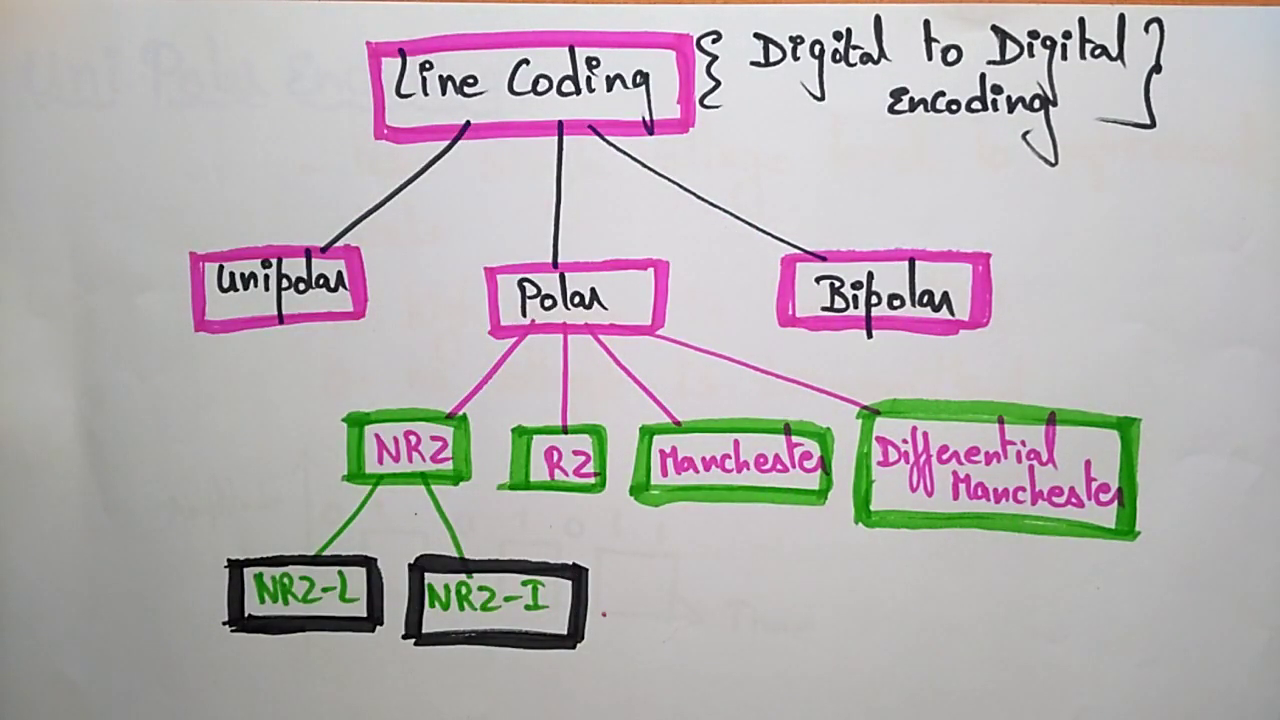 Line Coding { Digital to Digital
Encoding }
Unipolar
Polar
Bipolar
NRZ
RZ
Manchester
Differential
Manchester
NRZ-L
NRZ-I